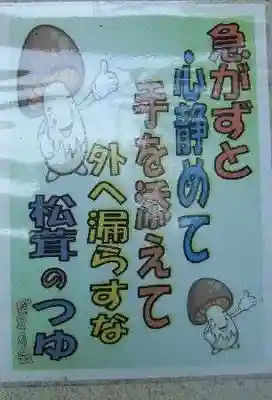 急がずと
心静めて
手を添えて
外へ漏らすな
松茸のつゆ